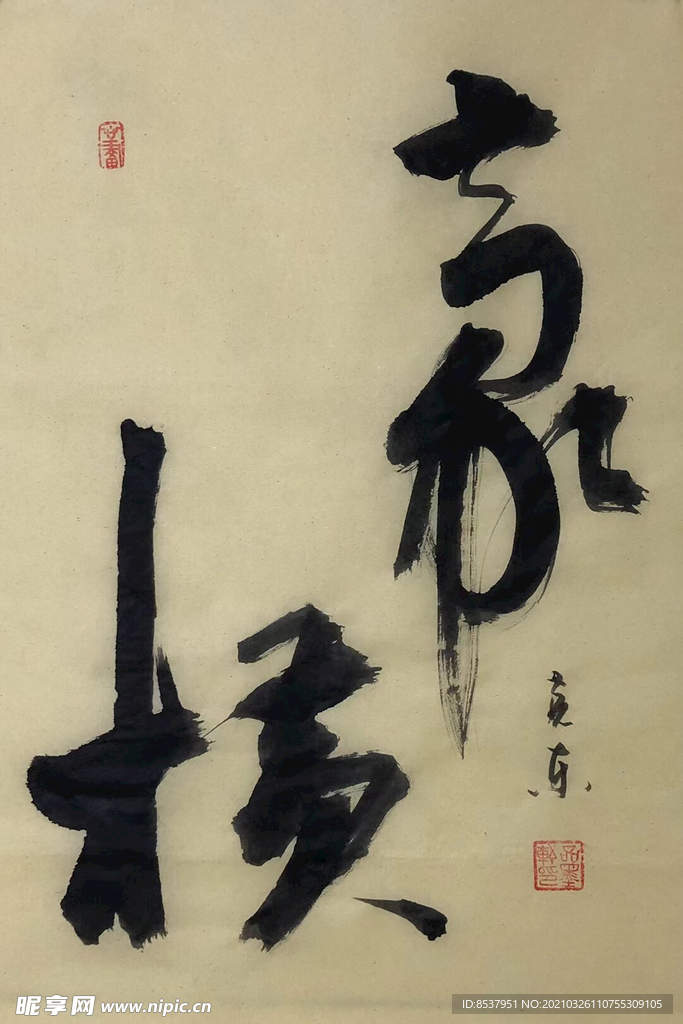 豪
横
克东
品墨軒印
昵享网 www.nipic.cn
ID:8537951 NO:20210326110755309105